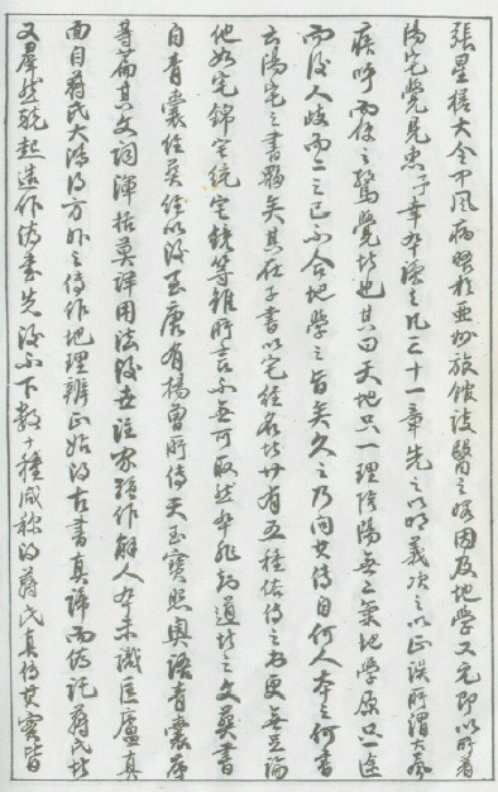 張星樵大令中風病臥於亞州旅館診醫之暇因及地學又完即以所著
陽宅覺見惠予幸卒讀之凡三十一章先之以明義次之以正誤所謂大聲
疾呼而使之驚覺者也其曰天地只一理陰陽無二氣地學原只一途
而後人歧而二之已不合地學之旨矣久之乃問其傳自何人本之何書
云陽宅之書夥矣其在子書以宅經名者廿有五種依傳之為更無足論
他如宅錦宅統宅鏡等雖所言不無可取然卒非知道者之文葬書
自青囊經葬經以後至唐有楊曾所傳天玉寶照奧語青囊序
等篇其文詞渾括莫詳用法後世註家強作解人卒未識匡廬真
面自蔣氏大鴻得方外之傳作地理辨正始得古書真諦而偽託蔣氏者
又羣然競起造作偽書先後不下數十種咸稱得蔣氏真傳其實皆